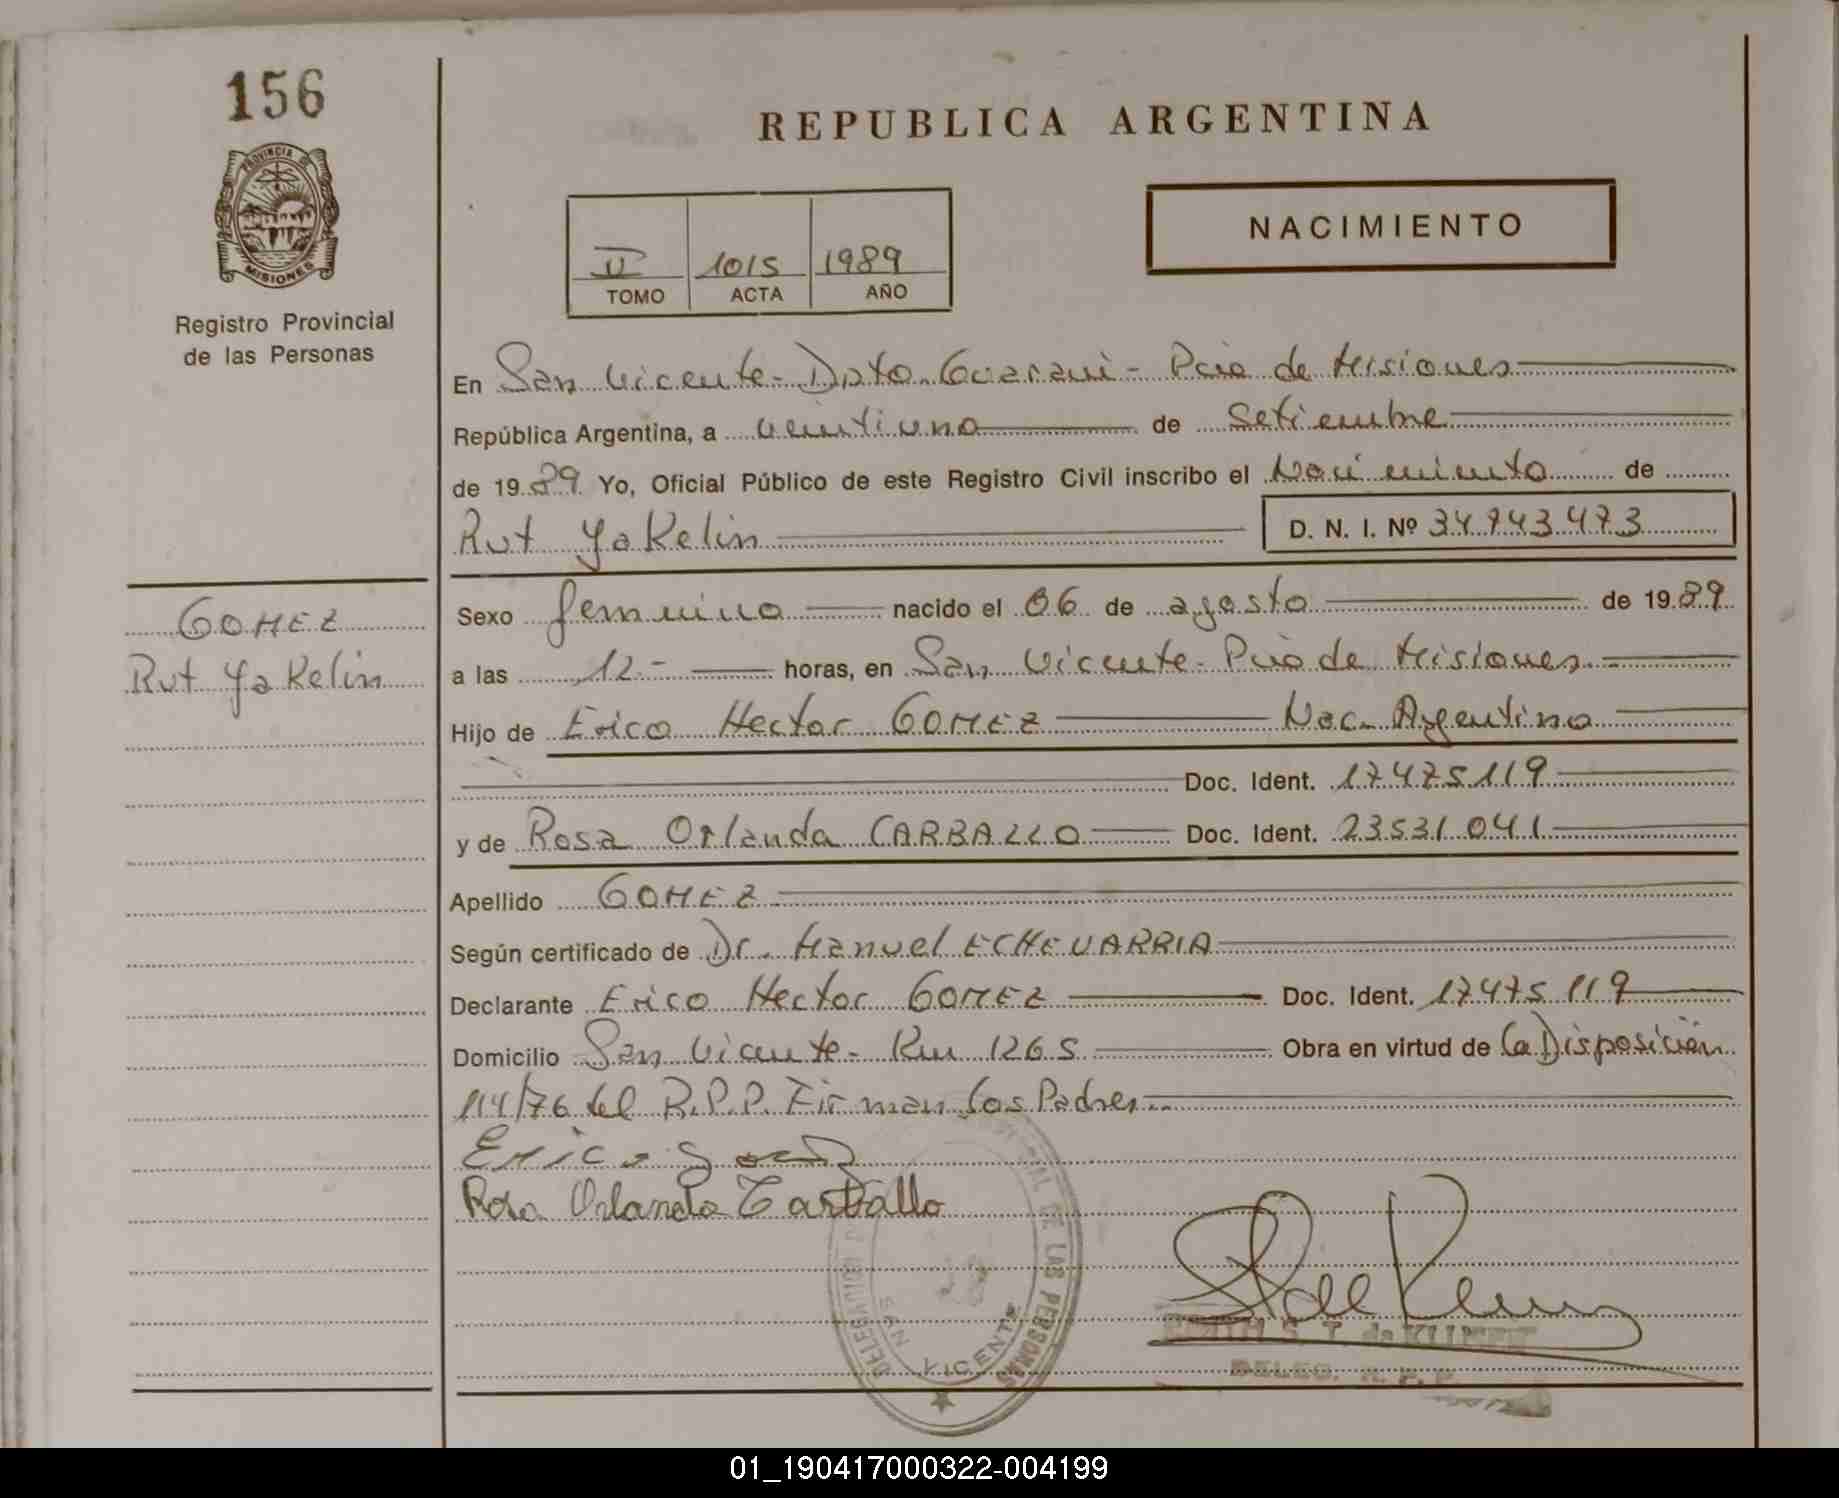 156
REPUBLICA ARGENTINA
PROVINCIA DE
MISIONES
Registro Provincial
de las Personas
NACIMIENTO
II 1015 1989
TOMO ACTA AÑO
En San Vicente - Dpto. Guarani - Pcia de Misiones
República Argentina, a veintiuno de Setiembre
de 1989 Yo, Oficial Público de este Registro Civil inscribo el Nacimiento de
Rut Yakelin D. N. I. Nº 34.743.473
GOMEZ
Rut Yakelin
Sexo femenino nacido el 06 de agosto de 1989
a las 12.- horas, en San Vicente - Pcia de Misiones.-
Hijo de Erico Hector GOMEZ Nac. Argentino
Doc. Ident. 17.475.119
y de Rosa Orlanda CARBALLO Doc. Ident. 23531041
Apellido GOMEZ
Según certificado de Dr. Manuel ECHEVARRIA
Declarante Erico Hector GOMEZ Doc. Ident. 17.475.119
Domicilio San Vicente - Km 1265 Obra en virtud de la Disposición
114/76 del R.P.P. Firman los Padres.-
Erico
Rosa Orlanda Carballo
DE LAS PERSONAS
SAN VICENTE
DELEG. R. P. P.
01_190417000322-004199